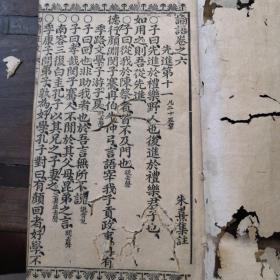 論語卷之六
朱熹集註
先進第十一 凡二十五章
○子曰先進於禮樂野人也後進於禮樂君子也
如用之則吾從先進
○子曰從我於陳蔡者皆不及門也
德行顏淵閔子騫冉伯牛仲弓言語宰我子貢政事冉有
季路文學子游子夏
○子曰回也非助我者也於吾言無所不說
○子曰孝哉閔子騫人不間於其父母昆弟之言
○南容三復白圭孔子以其兄之子妻之
○季康子問弟子孰為好學孔子對曰有顏回者好學不